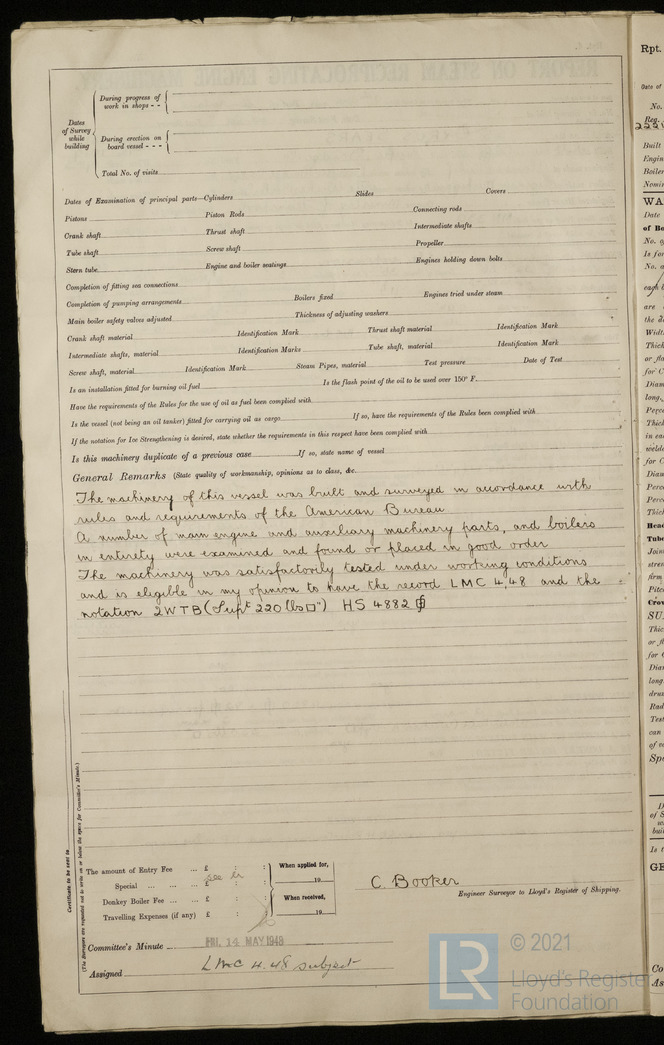 Rpt.
During progress of work in shops - -
Dates of Survey while building
During erection on board vessel - - -
Total No. of visits
Dates of Examination of principal parts—Cylinders Slides Covers
Pistons Piston Rods Connecting rods
Crank shaft Thrust shaft Intermediate shafts
Tube shaft Screw shaft Propeller
Stern tube Engine and boiler seatings Engines holding down bolts
Completion of fitting sea connections
Completion of pumping arrangements Boilers fixed Engines tried under steam
Main boiler safety valves adjusted Thickness of adjusting washers
Crank shaft material Identification Mark Thrust shaft material Identification Mark
Intermediate shafts, material Identification Marks Tube shaft, material Identification Mark
Screw shaft, material Identification Mark Steam Pipes, material Test pressure Date of Test
Is an installation fitted for burning oil fuel Is the flash point of the oil to be used over 150° F.
Have the requirements of the Rules for the use of oil as fuel been complied with
Is the vessel (not being an oil tanker) fitted for carrying oil as cargo If so, have the requirements of the Rules been complied with
If the notation for Ice Strengthening is desired, state whether the requirements in this respect have been complied with
Is this machinery duplicate of a previous case If so, state name of vessel
General Remarks (State quality of workmanship, opinions as to class, &c.
The machinery of this vessel was built and surveyed in accordance with
rules and requirements of the American Bureau
A number of main engine and auxiliary machinery parts, and boilers
in entirety were examined and found or placed in good order
The machinery was satisfactorily tested under working conditions
and is eligible in my opinion to have the record LMC 4.48 and the
notation 2WTB (Supt 220 lbs□") HS 4882
Certificate to be sent to
(The Surveyors are requested not to write on or below the space for Committee's Minute.)
The amount of Entry Fee ... £ : : When applied for,
Special ... ... ... £ : : 19
Donkey Boiler Fee ... ... £ : : When received,
Travelling Expenses (if any) £ : : 19
C. Booker
Engineer Surveyor to Lloyd's Register of Shipping.
Committee's Minute FRI. 14 MAY 1948
Assigned LMC 4.48 subject
LR © 2021
Lloyd's Register
Foundation